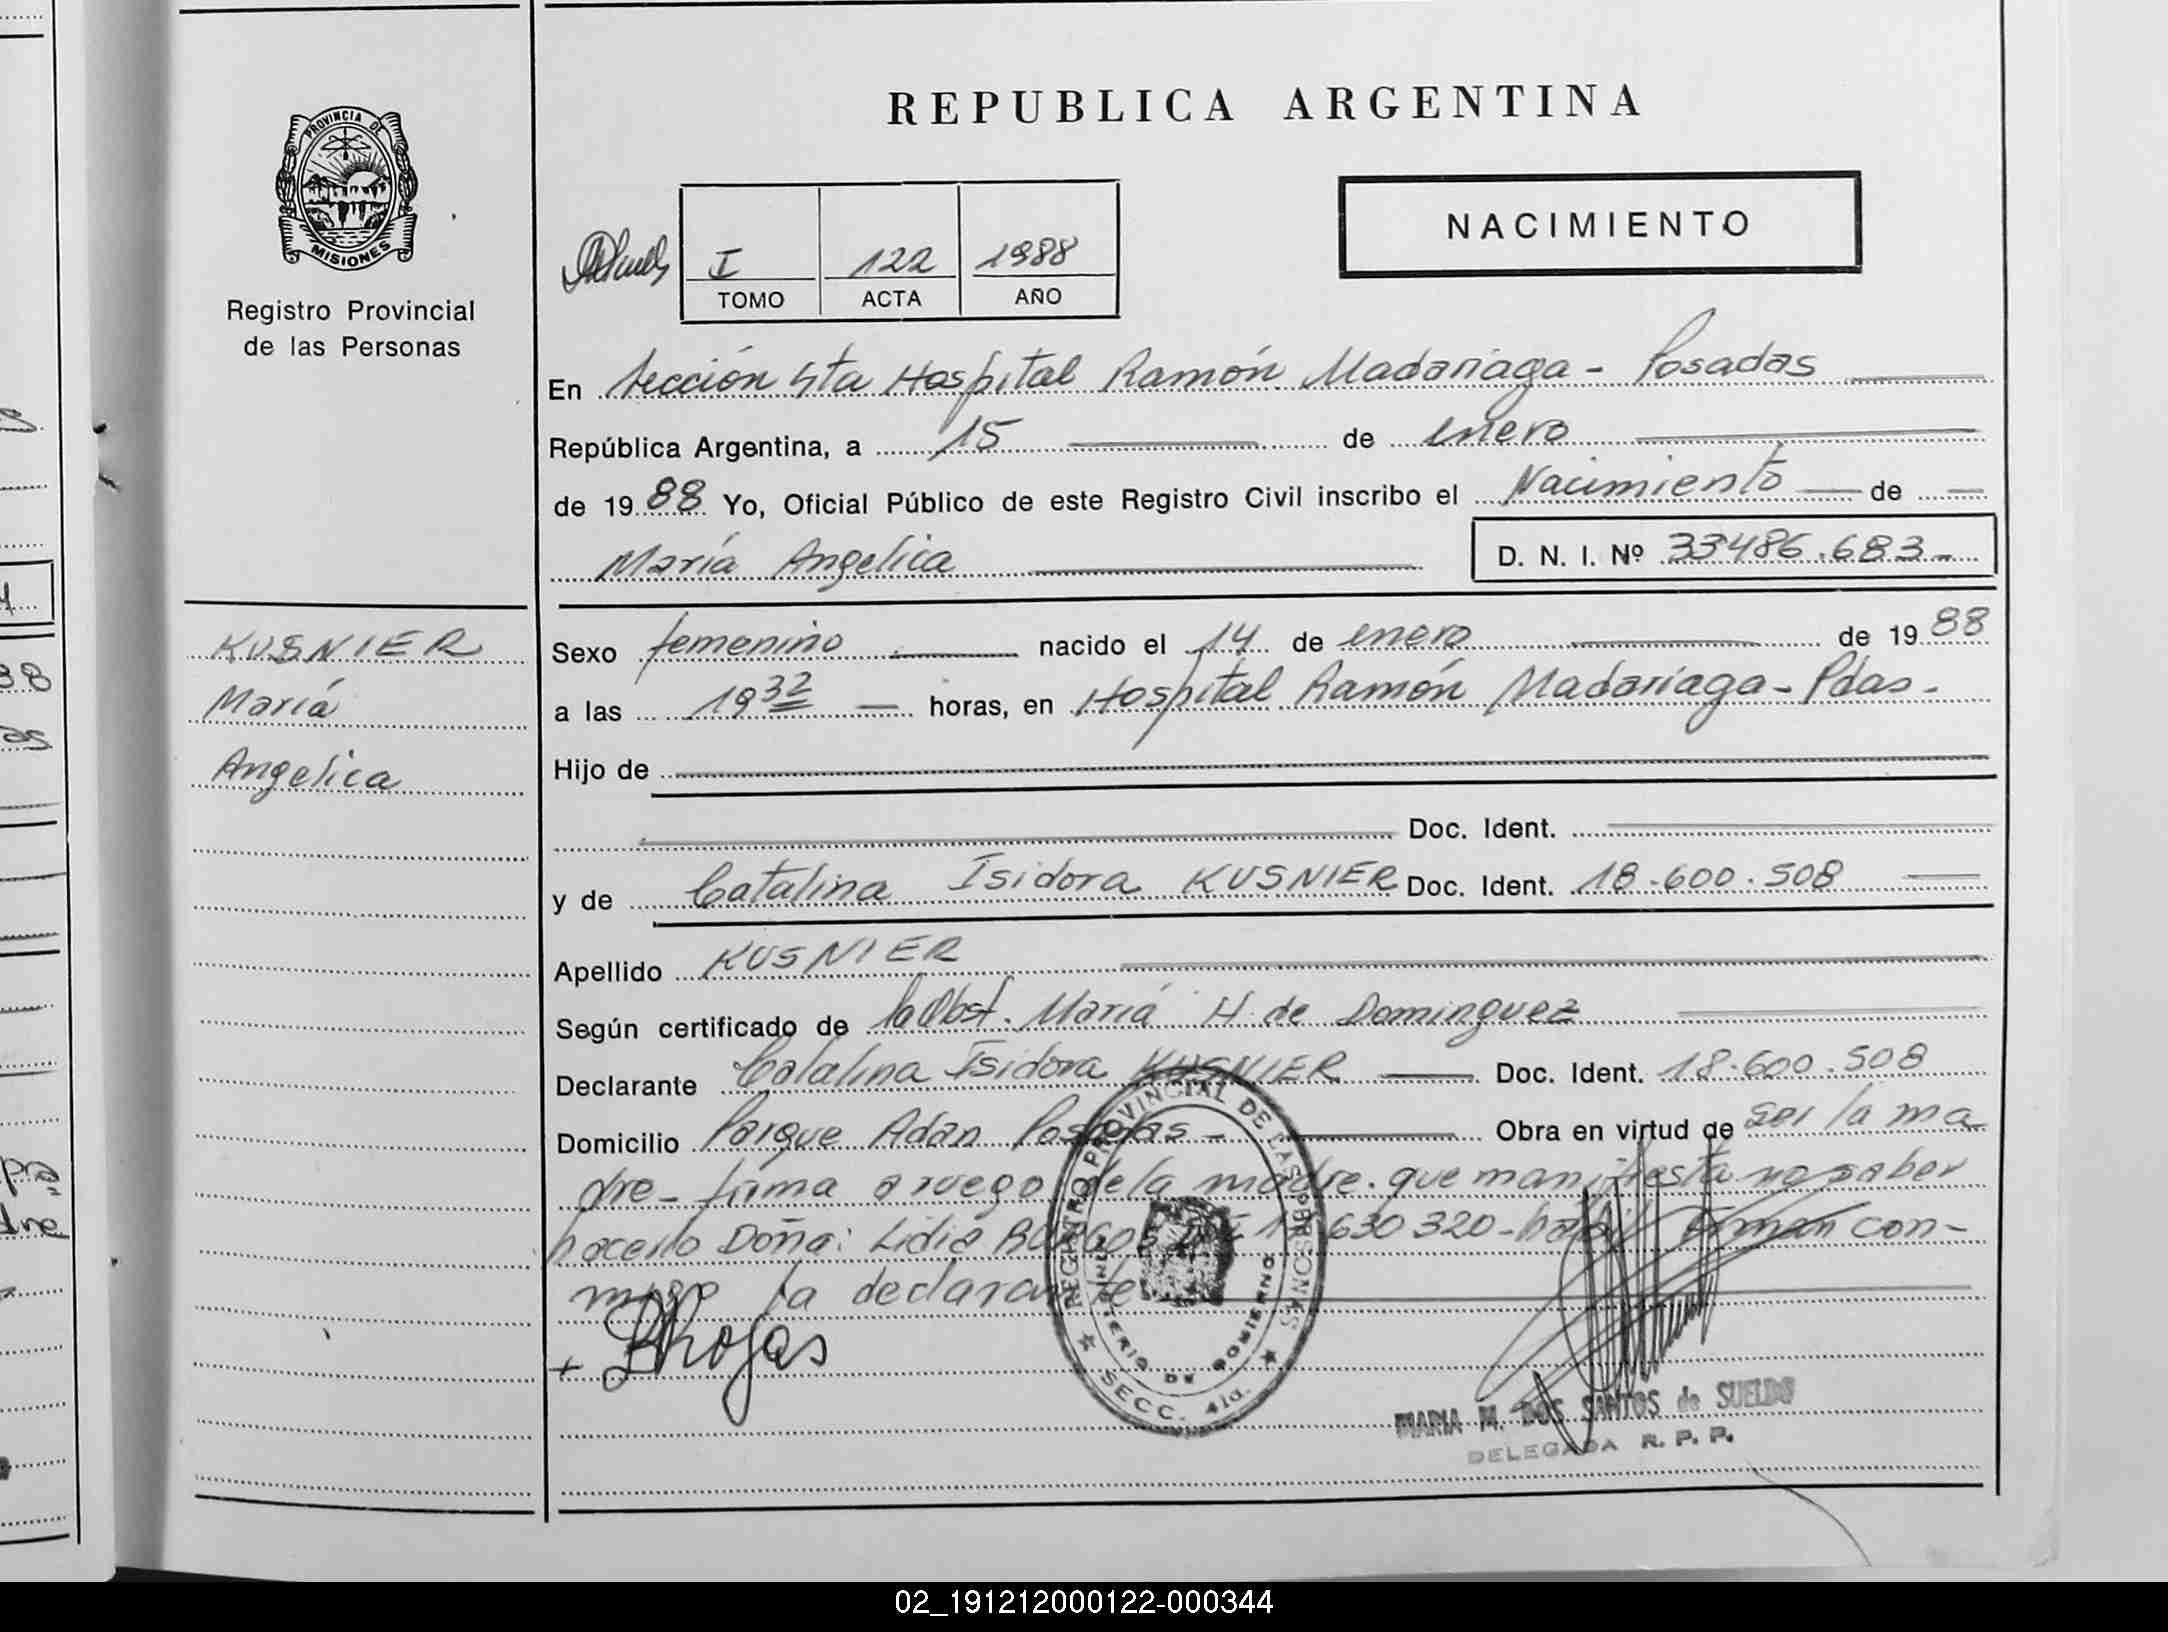 REPUBLICA ARGENTINA
PROVINCIA DE
MISIONES
Registro Provincial
de las Personas
I 122 1988
TOMO ACTA AÑO
NACIMIENTO
En Sección 4ta Hospital Ramón Madariaga - Posadas
República Argentina, a 15 de enero
de 1988 Yo, Oficial Público de este Registro Civil inscribo el Nacimiento de
María Angelica D. N. I. Nº 33486.683-
KUSNIER
María
Angelica
Sexo femenino nacido el 14 de enero de 1988
a las 19 32 horas, en Hospital Ramón Madariaga - Pdas-
Hijo de
Doc. Ident.
y de Catalina Isidora KUSNIER Doc. Ident. 18.600.508
Apellido KUSNIER
Según certificado de la Obst. María H. de Dominguez
Declarante Catalina Isidora KUSNIER Doc. Ident. 18.600.508
Domicilio Parque Adan Posadas - Obra en virtud de ser la ma
dre- firma a ruego de la madre. que manifiesta no saber
hacerlo Doña: Lidia 630320- habil firman con-
migo la declarante
REGISTRO PROVINCIAL DE LAS PERSONAS
MINISTERIO DE GOBIERNO
SECC. 4ta.
Rojas
MARIA M. DOS SANTOS de SUELDO
DELEGADA R. P. P.
02_191212000122-000344